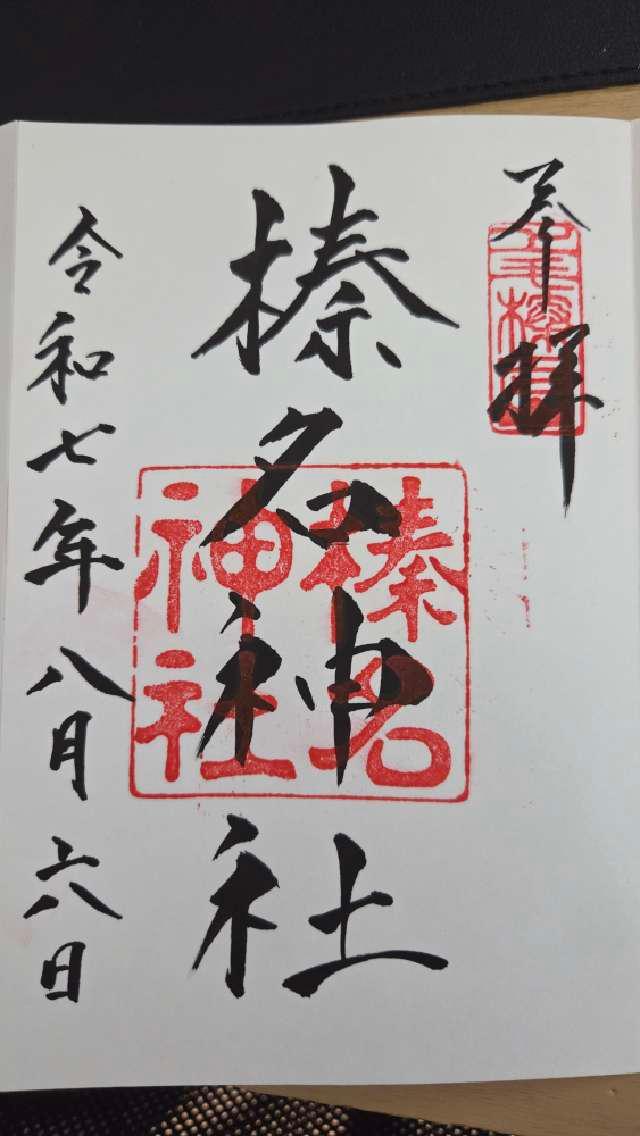 奉拝
榛名神社
榛名神社
令和七年八月六日